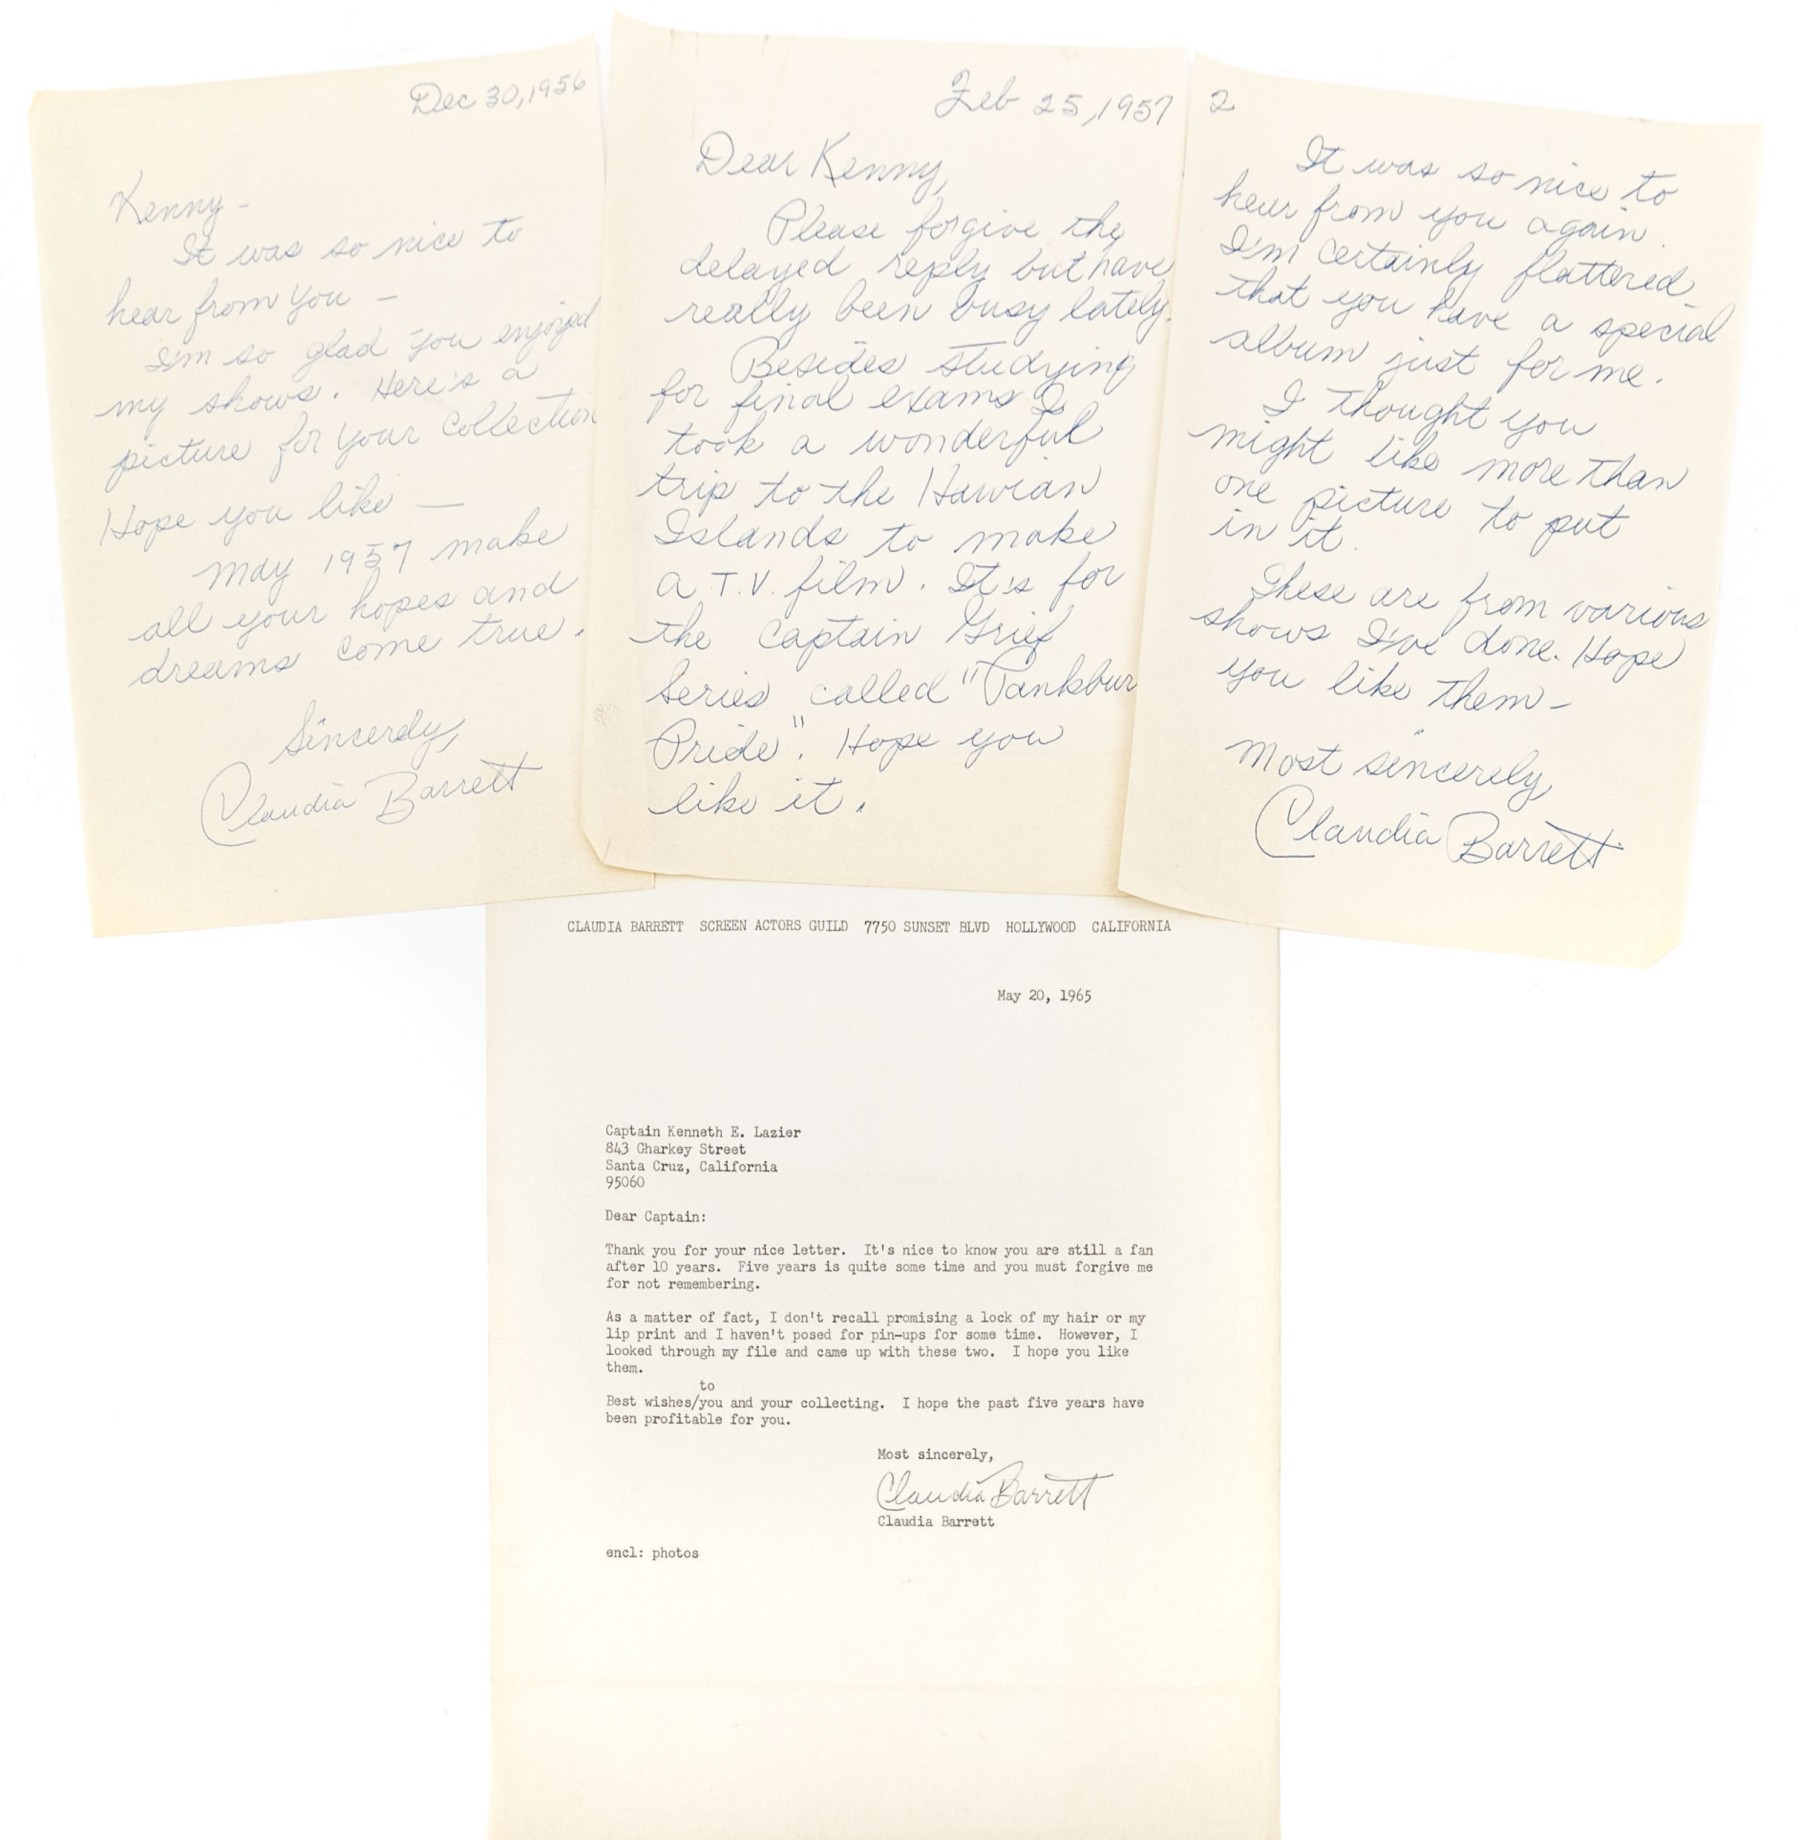 Dec 30, 1956
Kenny -
It was so nice to
hear from you -
I'm so glad you enjoyed
my shows. Here's a
picture for your collection
Hope you like -
May 1957 make
all your hopes and
dreams come true.
Sincerely,
Claudia Barrett
Feb 25, 1957
Dear Kenny,
Please forgive the
delayed reply but have
really been busy lately.
Besides studying
for final exams I
took a wonderful
trip to the Hawian
Islands to make
a T.V. film. It's for
the Captain Grief
Series called "Pankbur
Pride". Hope you
like it.
2
It was so nice to
hear from you again.
I'm certainly flattered
that you have a special
album just for me.
I thought you
might like more than
one picture to put
in it.
These are from various
shows I've done. Hope
you like them -
Most sincerely,
Claudia Barrett
CLAUDIA BARRETT SCREEN ACTORS GUILD 7750 SUNSET BLVD HOLLYWOOD CALIFORNIA
May 20, 1965
Captain Kenneth E. Lazier
843 Gharkey Street
Santa Cruz, California
95060
Dear Captain:
Thank you for your nice letter. It's nice to know you are still a fan
after 10 years. Five years is quite some time and you must forgive me
for not remembering.
As a matter of fact, I don't recall promising a lock of my hair or my
lip print and I haven't posed for pin-ups for some time. However, I
looked through my file and came up with these two. I hope you like
them.
to
Best wishes/you and your collecting. I hope the past five years have
been profitable for you.
Most sincerely,
Claudia Barrett
Claudia Barrett
encl: photos